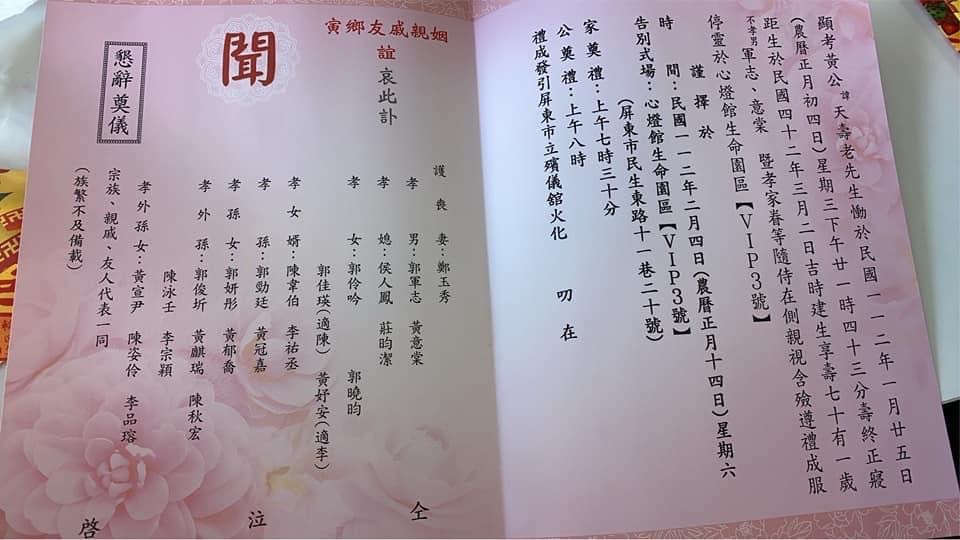 顯考黃公諱天壽老先生慟於民國一一二年一月廿五日
(農曆正月初四日)星期三下午廿一時四十三分壽終正寢
距生於民國四十二年三月二日吉時建生享壽七十有一歲
不孝男軍志、意棠 暨孝家眷等隨侍在側親視含殮遵禮成服
停靈於心燈館生命園區【VIP3號】
謹擇於
時 間:民國一一二年二月四日(農曆正月十四日)星期六
告別式場:心燈館生命園區【VIP3號】
(屏東市民生東路十一巷二十號)
家奠禮:上午七時三十分
公奠禮:上午八時
禮成發引屏東市立殯儀館火化 叨在
姻親戚友鄉寅
誼 哀此訃
聞
懇辭奠儀
護喪妻:鄭玉秀
孝男:郭軍志 黃意棠
孝媳:侯人鳳 莊昀潔
孝女:郭伶吟 郭曉昀
郭佳瑛(適陳) 黃妤安(適李)
孝女婿:陳韋伯 李祐丞
孝孫:郭勁廷 黃冠嘉
孝孫女:郭妍彤 黃郁喬
孝外孫:郭俊圻 黃麒瑞 陳秋宏
陳泳壬 李宗穎
孝外孫女:黃宣尹 陳姿伶 李品瑢
宗族、親戚、友人代表一同
(族繁不及備載)
仝
泣
啓